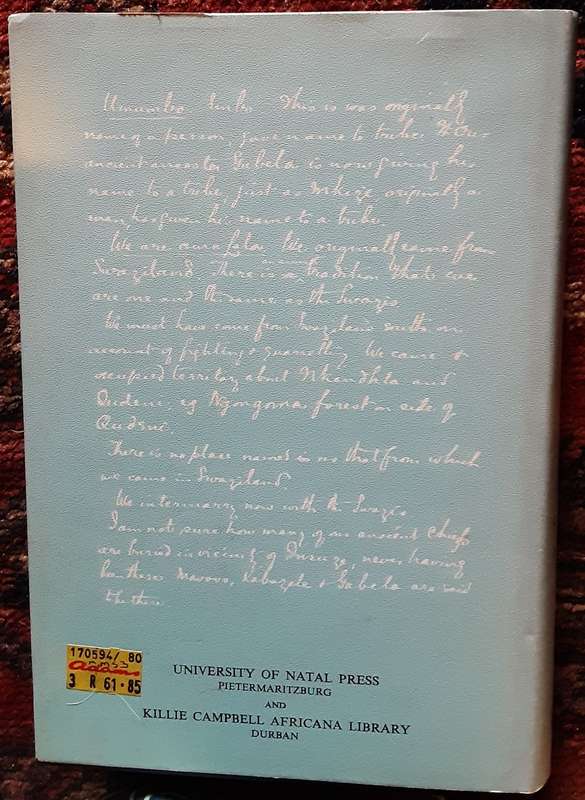 Umumbo Zulu. This is was originally
name of a person, gave name to tribe. Our
ancient ancestor Gubela is now giving his
name to a tribe, just as Mkize originally a
man, has given his name to a tribe.
We are Lala. We originally came from
Swaziland. There is an ancient tradition that we
are one and the same as the Swazis
We must have come from Swaziland south on
account of fighting & quarrelling We came &
occupied territory about Nkandhla and
Qudeni, eg forest on side of
Qudeni.
There is no place named in us that from which
we came in Swaziland.
We intermarry now with the Swazis
I am not sure how many of our ancient chiefs
are buried in vicinity of never having
been there. Mavovo, & Gubela are said
to be there.
170594/ 80
adams
3 R 61·85
UNIVERSITY OF NATAL PRESS
PIETERMARITZBURG
AND
KILLIE CAMPBELL AFRICANA LIBRARY
DURBAN